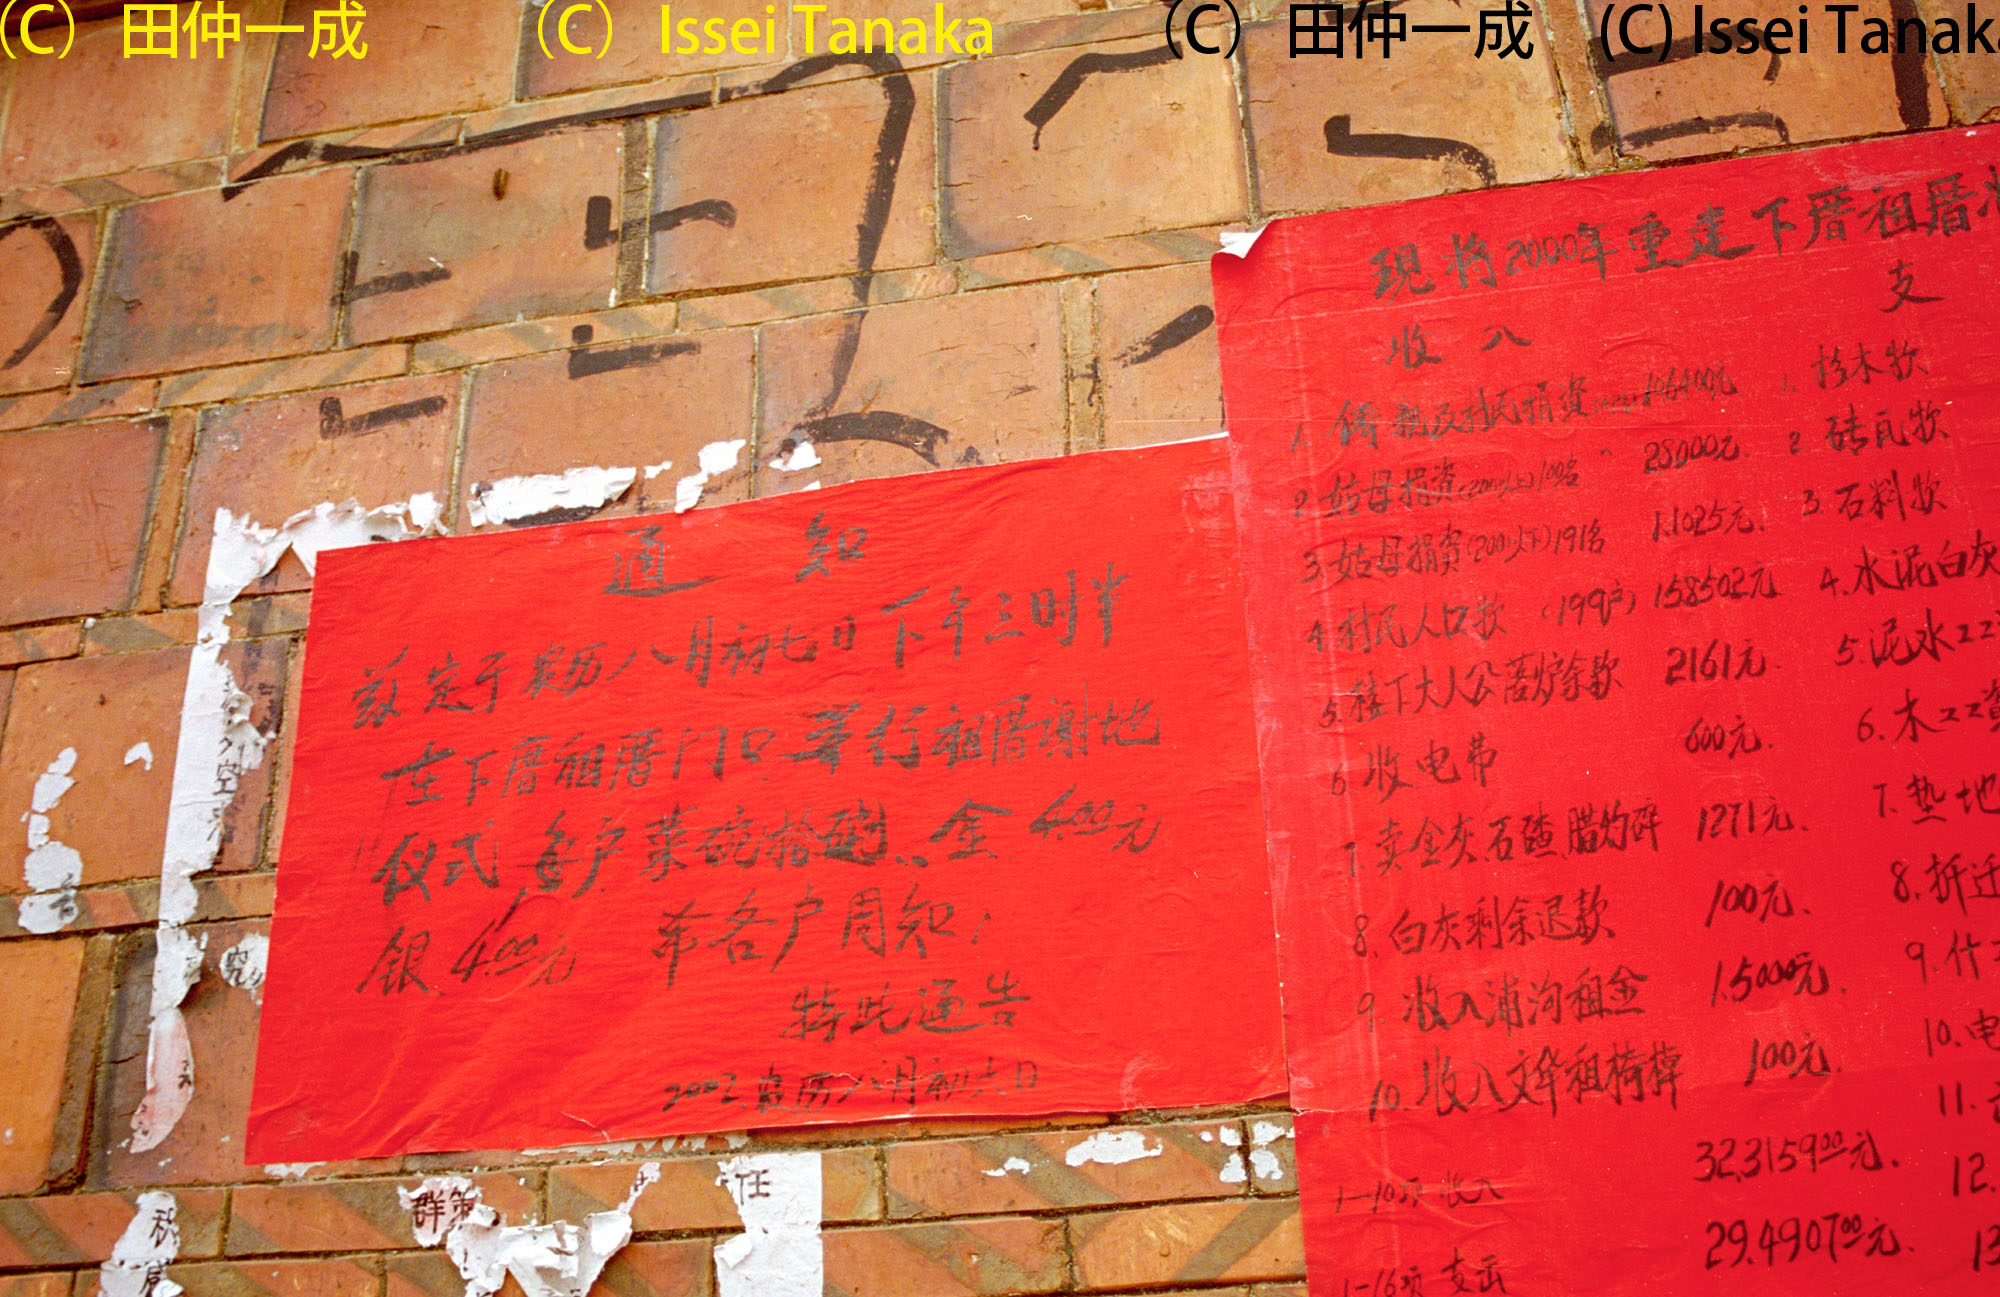 (C) 田仲一成 (C) Issei Tanaka (C) 田仲一成 (C) Issei Tanaka
通 知
兹定于农历八月初七日下午三时半
在下厝祖厝门口举行祖厝谢地
仪式 每户菜碗拾碗、金 4.00元
银 4.00元 希各户周知,
特此通告
2002.农历八月初六日
現将2000年重建下厝祖厝
收入
支
1. 侨親及村民捐资 106400元
2 姑母捐资(200以上)100名 28000元
3. 姑母捐资(200以下)191名 1.1025元.
4. 村民人口款 (199户) 158502元
5. 楼下大人公落炉余款 2161元.
6 收电费 600元.
7. 卖金灰.石碴.腊灼碎 1271元.
8. 白灰剩余退款 100元.
9. 收入浦沟租金 1.5000元.
10. 收入文华租椅棹 100元.
1-10项 收入 32.3159.00元.
1-16项 支出 29.4907.00元.
1. 杉木款
2 砖瓦款
3. 石料款
4. 水泥白灰
5. 泥水工
6. 木工
7. 垫地
8. 拆迁
9. 什
10. 电
11.
12.
13
群策
任、